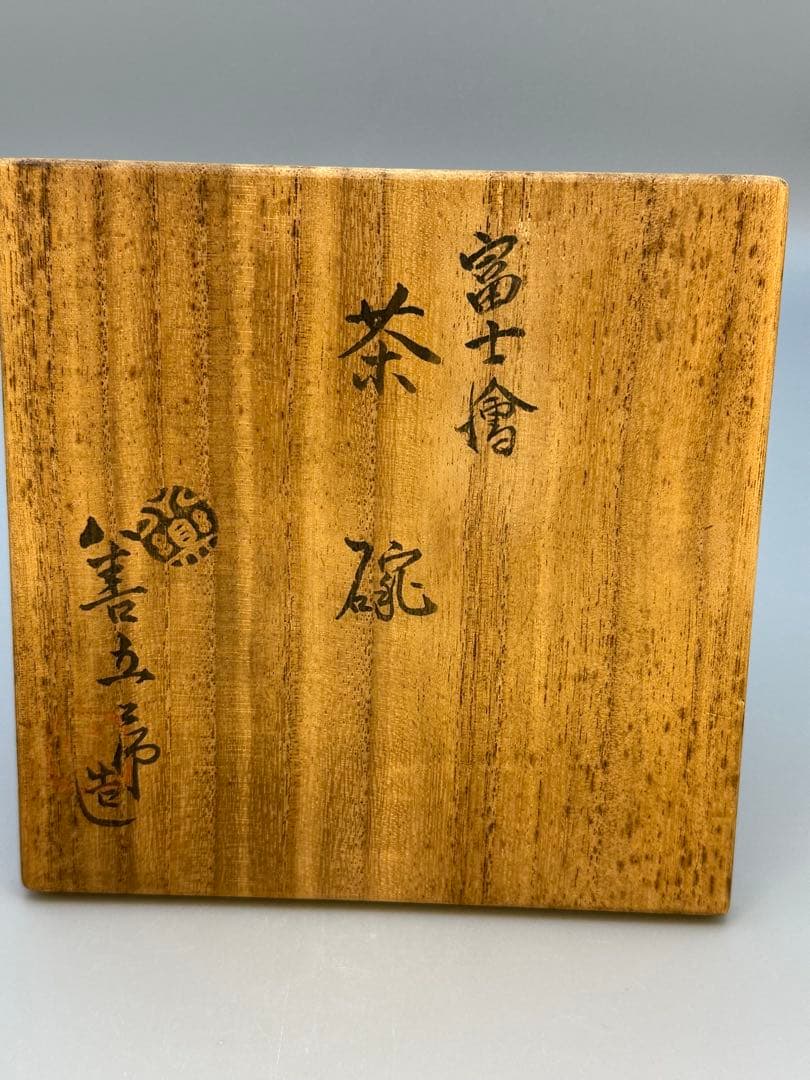 富士繪
茶碗
善五郎造